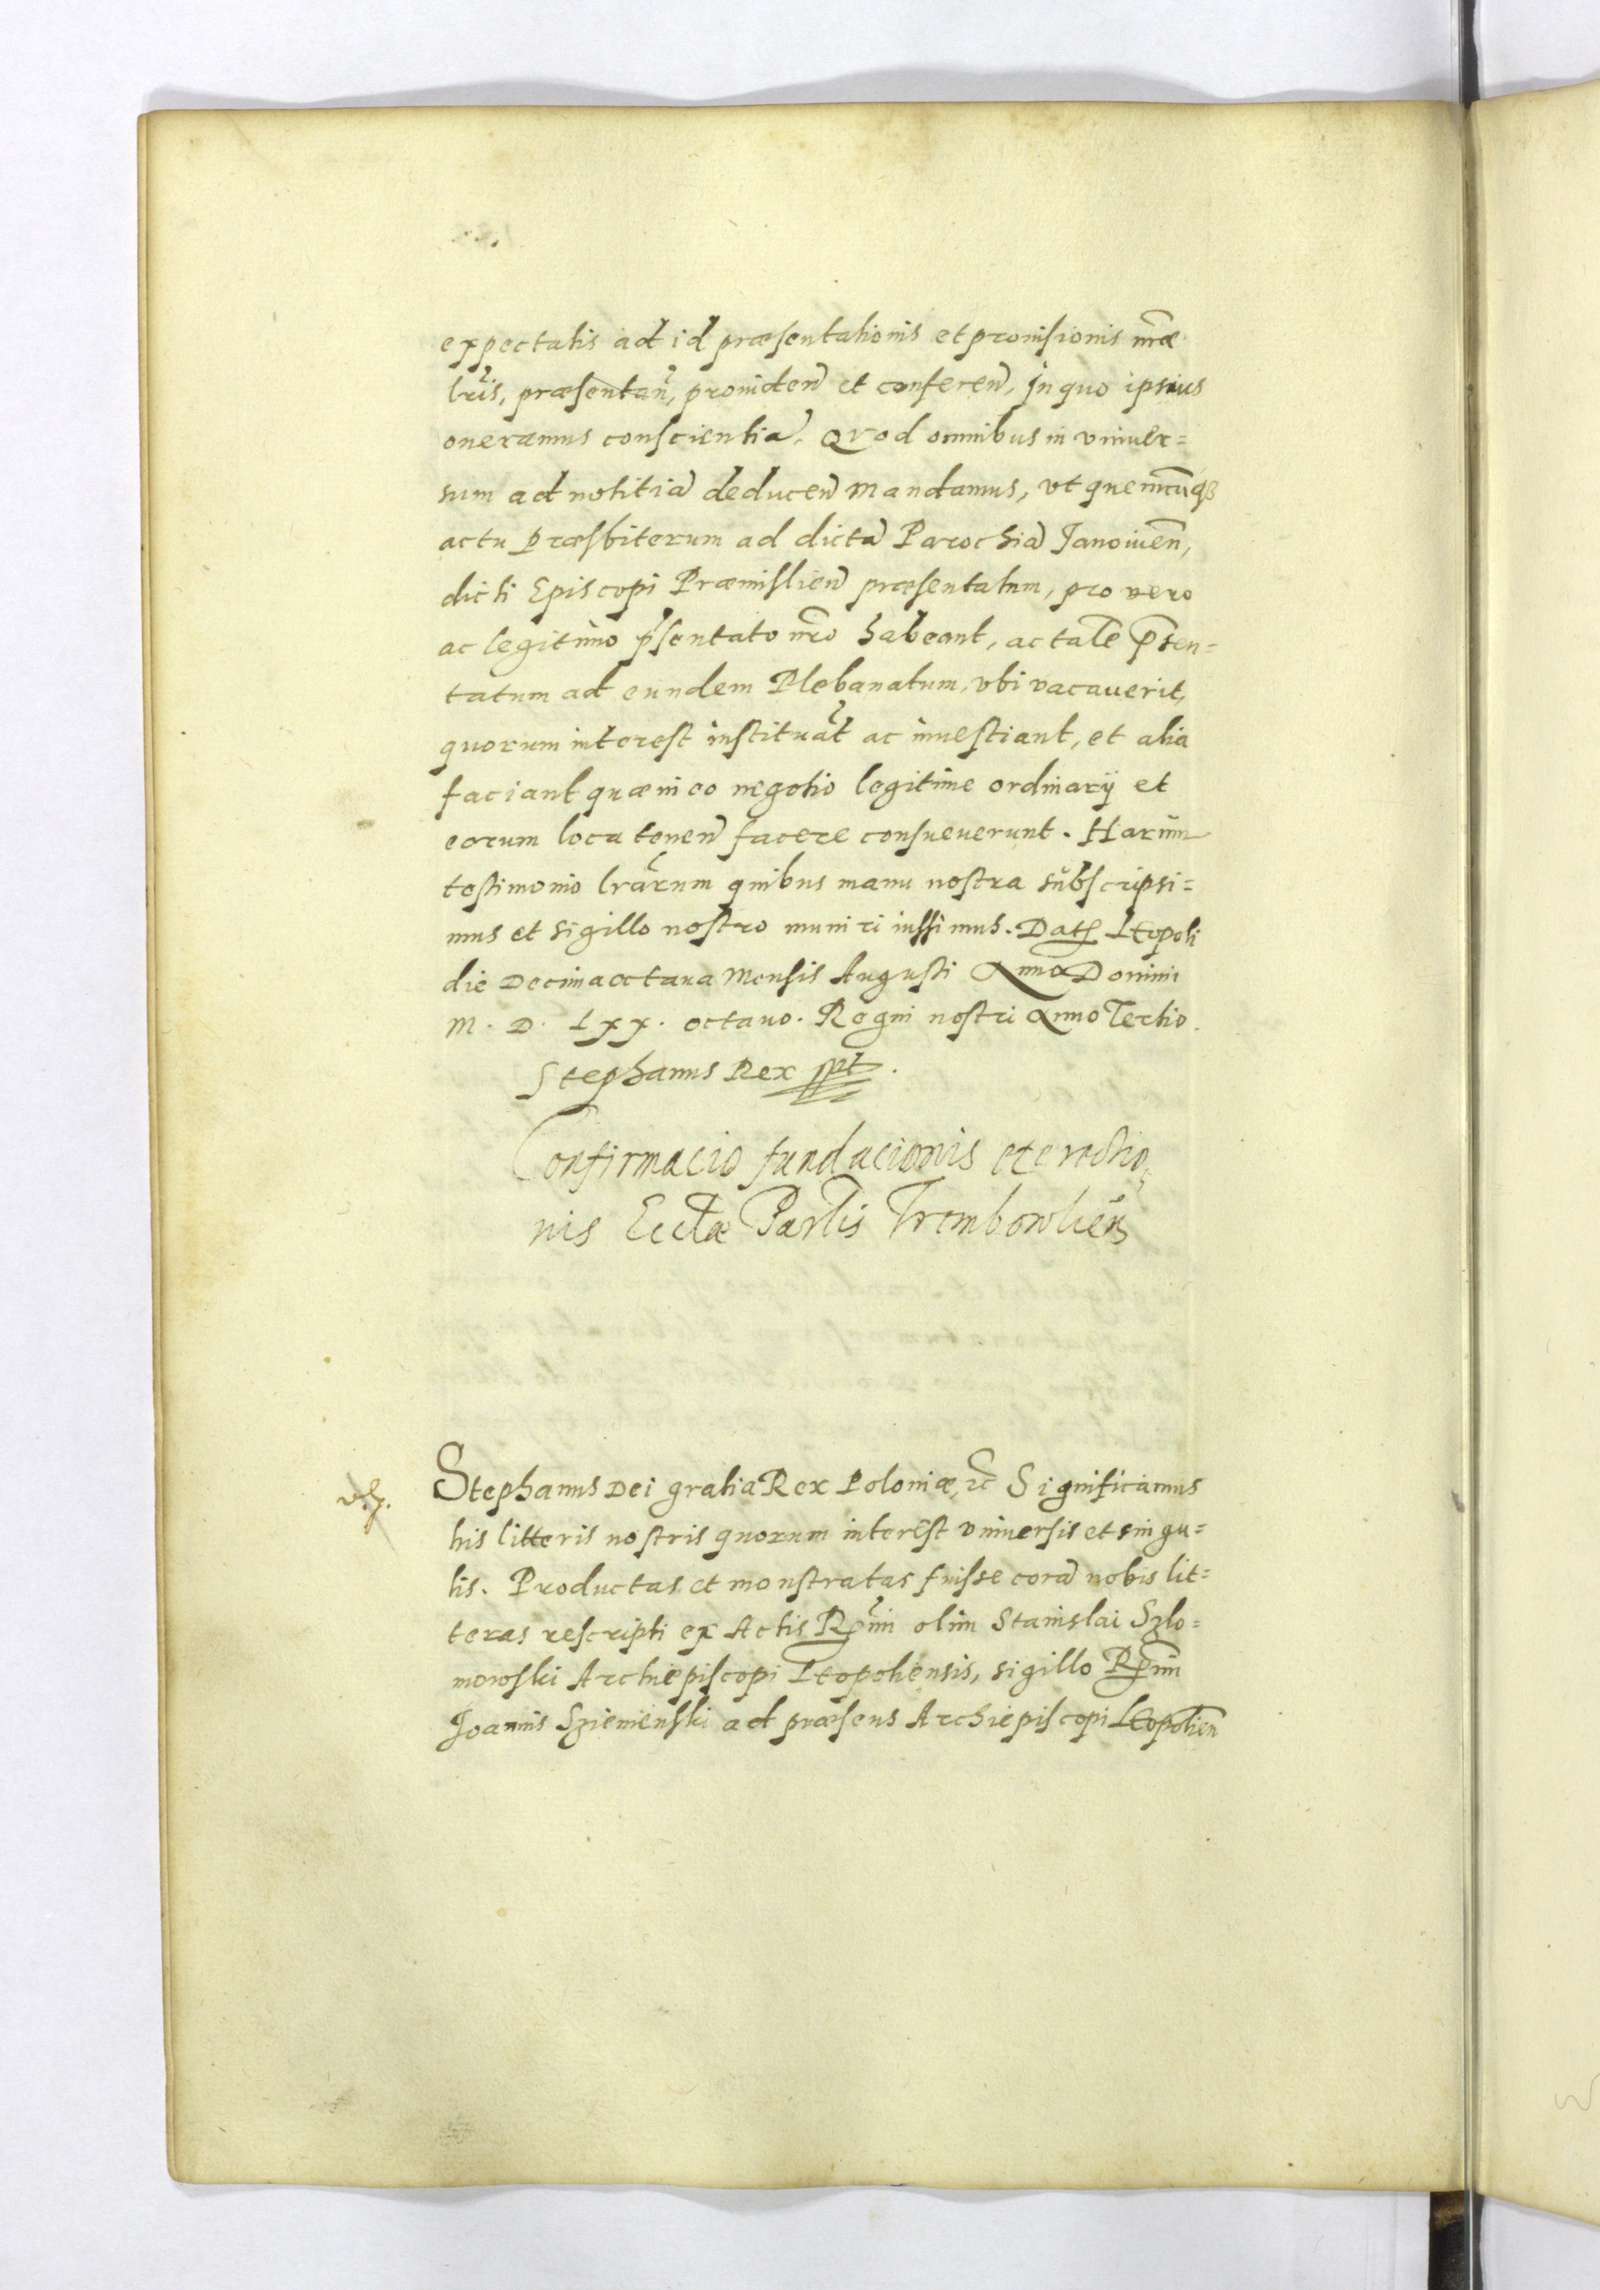 expectatis ad id præsentationis et prouisionis nr̃æ
lr̃is, præsentan̄, prouiden̄ et conferen̄, In quo ipsius
oneramus conscientiā. Quod omnibus in vniuer=
sum ad notitiā deducen̄ mandamus, vt quemcūqȝ
actu præsbiterum ad dictā Parochiā Janouien̄,
dicti Episcopi Præmislien̄ præsentatum, pro vero
ac legitimo p̄sentato nr̃o habeant, ac talē p̄sen=
tatum ad eundem Plebanatum, vbi vacauerit,
quorum interest instituāt ac inuestiant, et alia
faciant quæ in eo negotio legitime ordinarij et
eorum loca tenen̄ facere consueuerunt. Harum
testimonio lr̃arum quibus manu nostra subscripsi=
mus et sigillo nostro muniri iussimus. Dat̄ Leopoli
die Decima octaua Mensis Augusti Anno Domini
M. D. Lxx. octauo. Regni nostri Anno Tertio.
Stephanus Rex sst.
Confirmacio fundacionis et erectio,
nis Eccl̃æ Par̃lis Trembowlien̄
Stephanus Dei gratia Rex Poloniæ, ꝛc̃ Significamus
his litteris nostris quorum interest vniuersis et singu=
lis. Productas et monstratas fuisse corā nobis lit=
teras rescripti ex Actis Rm̃i olim Stanislai Szlo=
mowski Archiepiscopi Leopoliensis, sigillo Rm̃i
Joannis Szienienski ad præsens Archiepiscopi Leopolien̄